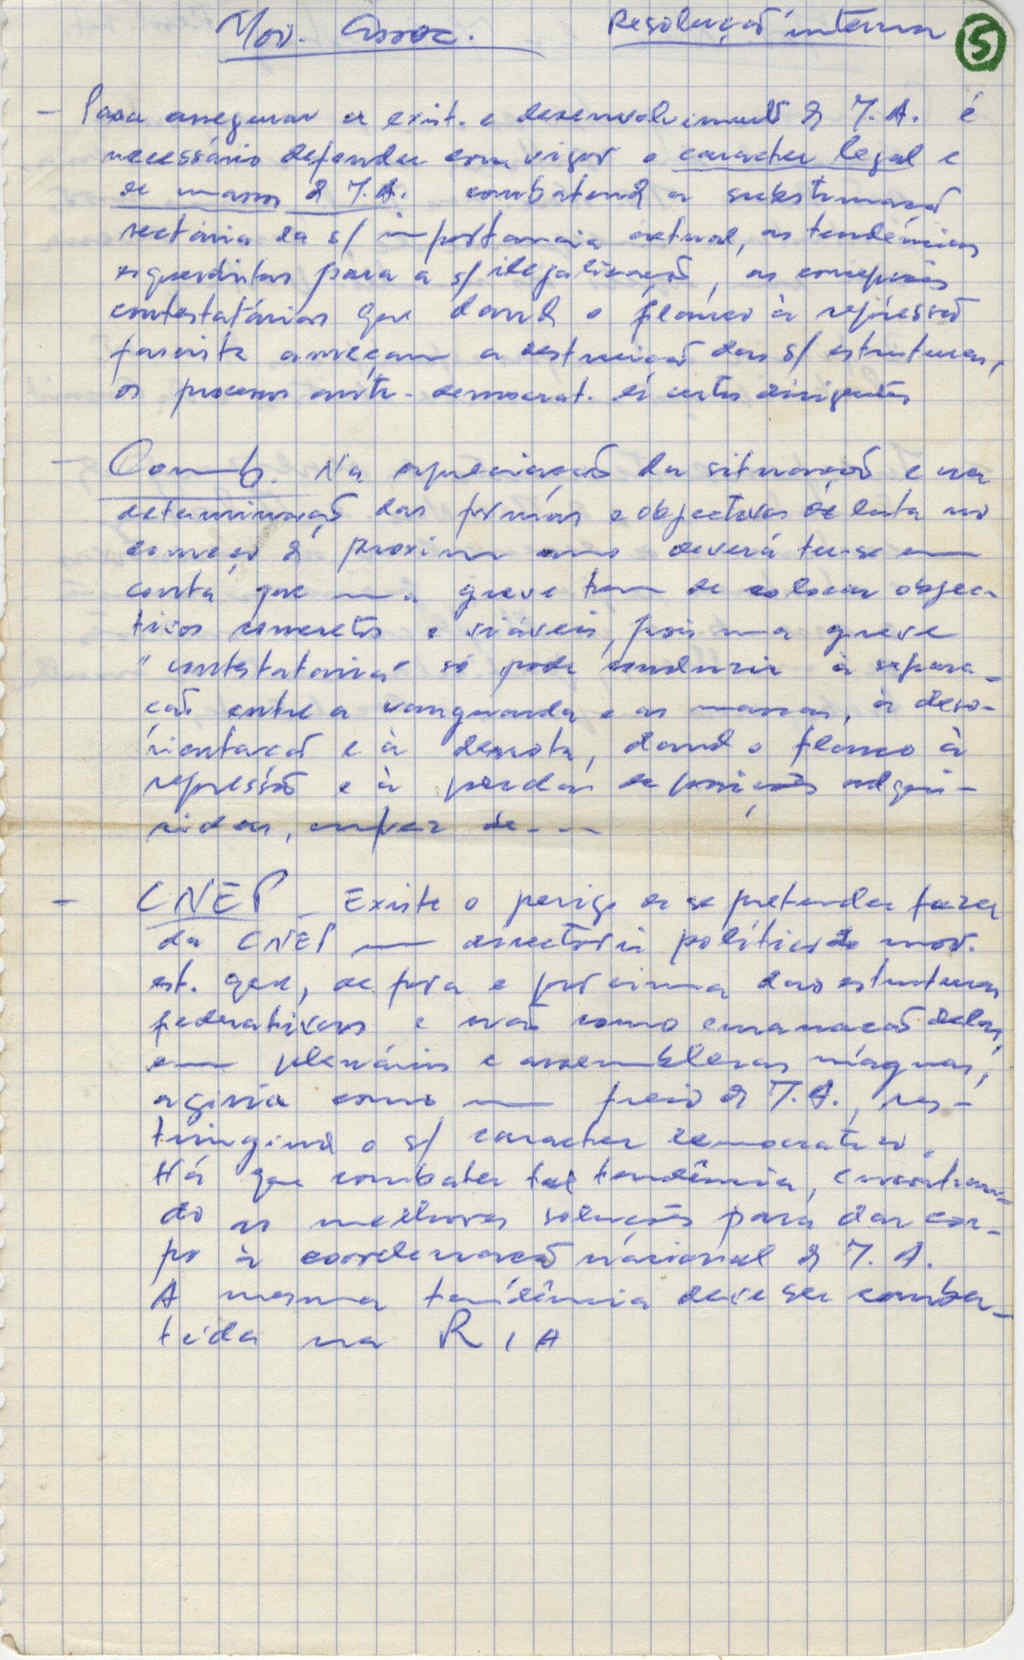 Mov. Assoc. Resolução interna 5
- Para assegurar a exist. e desenvolvimento do M.A. é
necessário defender com vigor o caracter legal e
de massas do M.A. combatendo a subestimação
sectária da s/ importancia actual, as tendências
esquerdistas para a s/ ilegalização, as concepções
contestatárias que dando o flanco à repressão
fascista ameaçam a destruição das s/ estruturas,
os processos anti-democrat. de certos dirigentes
- Comb. Na apreciação da situação e na
determinação das formas e objectivos de luta no
começo do proximo ano deverá ter-se em
conta que uma greve tem de colocar objec-
tivos concretos e viáveis, pois uma greve
"contestataria" só pode conduzir à separa-
ção entre a vanguarda e as massas, à deso-
rientação e à derrota, dando o flanco à
repressão e à perda de posições adqui-
ridas, em vez de - -
- CNEP - Existe o perigo de se pretender fazer
da CNEP um directório político do mov.
est. que, de fora e por cima das estruturas
federativas e não como emanação delas,
em plenários e assembleias magnas,
agiria como um freio do M.A., res-
tringindo o s/ caracter democratico.
Há que combater tal tendência, encontran-
do as melhores soluções para dar cor-
po à coordenação nacional do M.A.
A mesma tendência deve ser comba-
tida na R I A